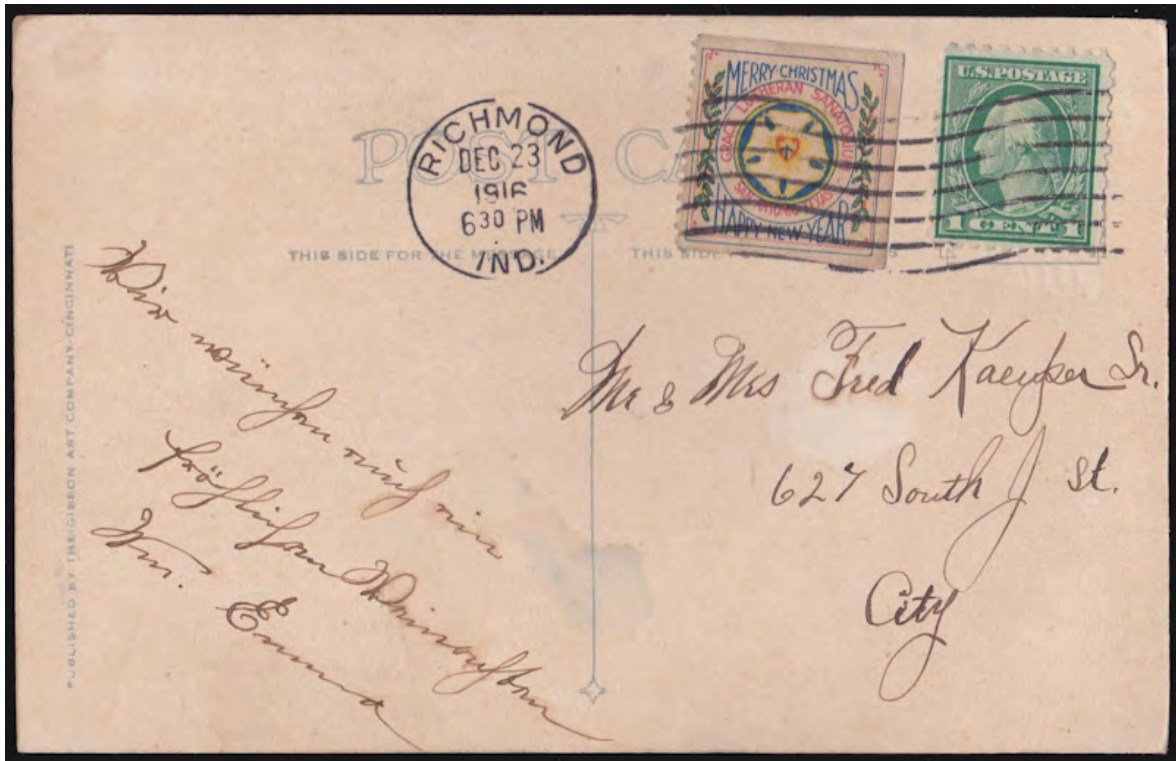 POST CARD
RICHMOND
DEC 23
1916
6 30 PM
IND.
MERRY CHRISTMAS
GRACE LUTHERAN SANATORIUM
SAN ANTONIO TEXAS
HAPPY NEW YEAR
U.S. POSTAGE
1 CENT 1
THIS SIDE FOR THE MESSAGE
THIS SIDE
PUBLISHED BY THE GIBSON ART COMPANY-CINCINNATI
Wir wünschen euch ein
fröhlichen Weinachten
Wm. Emma
Mr & Mrs Fred Kaeuper Sr.
627 South J St.
City